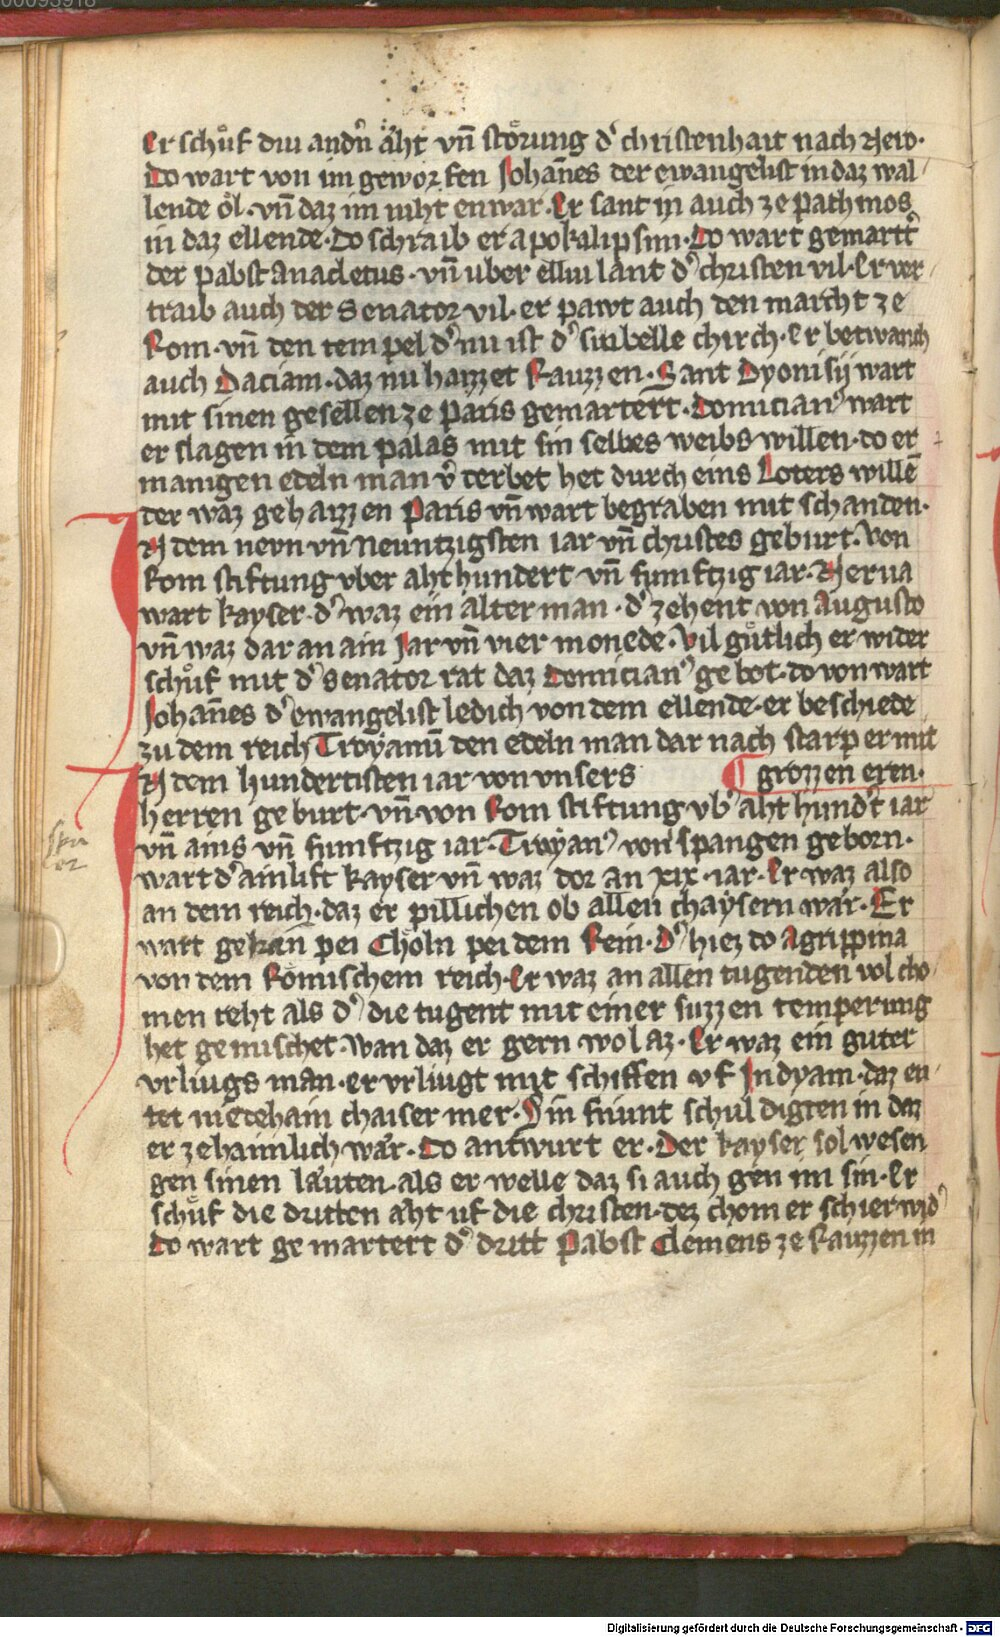 Er schůf diu andn̄ äht vn̄ störung d᾽ christenhait nach Nero·
Do wart von im geworfen Johan̄es der ewangelist in daz wal-
lende öl· vn̄ daz im niht enwar· Er sant in auch ze pathmos
in daz ellende· Do schraib er apokalipsim· Do wart gemartt᾽
der pabst Anacletus· vn̄ uber elliu lant d᾽ christen vil· Er ver-
traib auch der Senator vil· er pawt auch den marcht ze
Rom· vn̄ den tempel d᾽ nu ist d᾽ sinbelle chirch· Er betwanch
auch Daciam· daz nu haizzet Rauzzen· Sant Dyonisij wart
mit sinen gesellen ze Paris gemartert· Domician᾽ wart
er slagen in dem palas mit sin selbes weibs willen· do er
manigen edeln man v᾽derbet het durch eins Loters willē
der waz gehaizzen Paris vn̄ wart begraben mit schanden·
In dem nevn vn̄ Neuntzigsten iar vn̄ christes geburt· von
Rom stiftung vber aht hundert vn̄ fumftzig iar· Nerua
wart kayser· d᾽ waz ein alter man· d᾽ zehent von Augusto
vn̄ waz dar an ain Jar vn̄ vier monede· Vil gůtlich er wider
schůf mit d᾽ Senator rat daz Domician᾽ gebot· do von wart
Johan̄es d᾽ ewangelist ledich von dem ellende· er beschiede
zu dem reich Troyanū den edeln man dar nach starp er mit
In dem hundertisten iar von vnsers grozzen eren·
herren geburt· vn̄ von Rom stiftung vb᾽ aht hund᾽t iar
vn̄ ains vn̄ fumftzig iar· Troyan᾽ von Spangen geborn·
wart d᾽ ainlift kayser vn̄ waz dor an xix· iar· Er waz also
an dem reich· daz er pillichen ob allen chaysern wär· Er
wart pei Chöln pei dem Rein· D᾽ hiez do Agrippina
von dem Römischem reich· Er waz an allen tugenden vol cho-
men reht als d᾽ die tugent mit einer suzzen temperung
het gemischet· wan daz er gern wol az· Er waz ein guter
vrliugs man· er vrliugt mit schiffen vf Indyam· daz en-
tet nie dehain chaiser mer· Sin friunt schuldigten in daz
er ze haimlich wär· Do antwurt er· Der kayser sol wesen
gen sinen läuten als er welle daz si auch gen im sin· Er
schůf die dritten äht uf die christen· dez chom er schier wid᾽
Do wart gemartert d᾽ dritt Pabst Clemens ze Rauzzen in
Digitalisierung gefördert durch die Deutsche Forschungsgemeinschaft - DFG